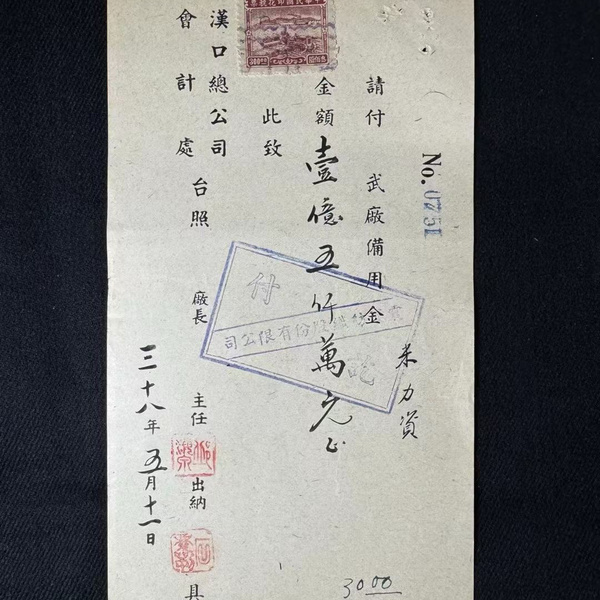 No. 0751
請付 武廠備用金
米力資
金額壹億五仟萬元正
此致
漢口總公司
會計處 台照
廠長 主任 出納 具
三十八年五月十一日
中華民國印花稅票
付訖
紡織股份有限公司
30.00